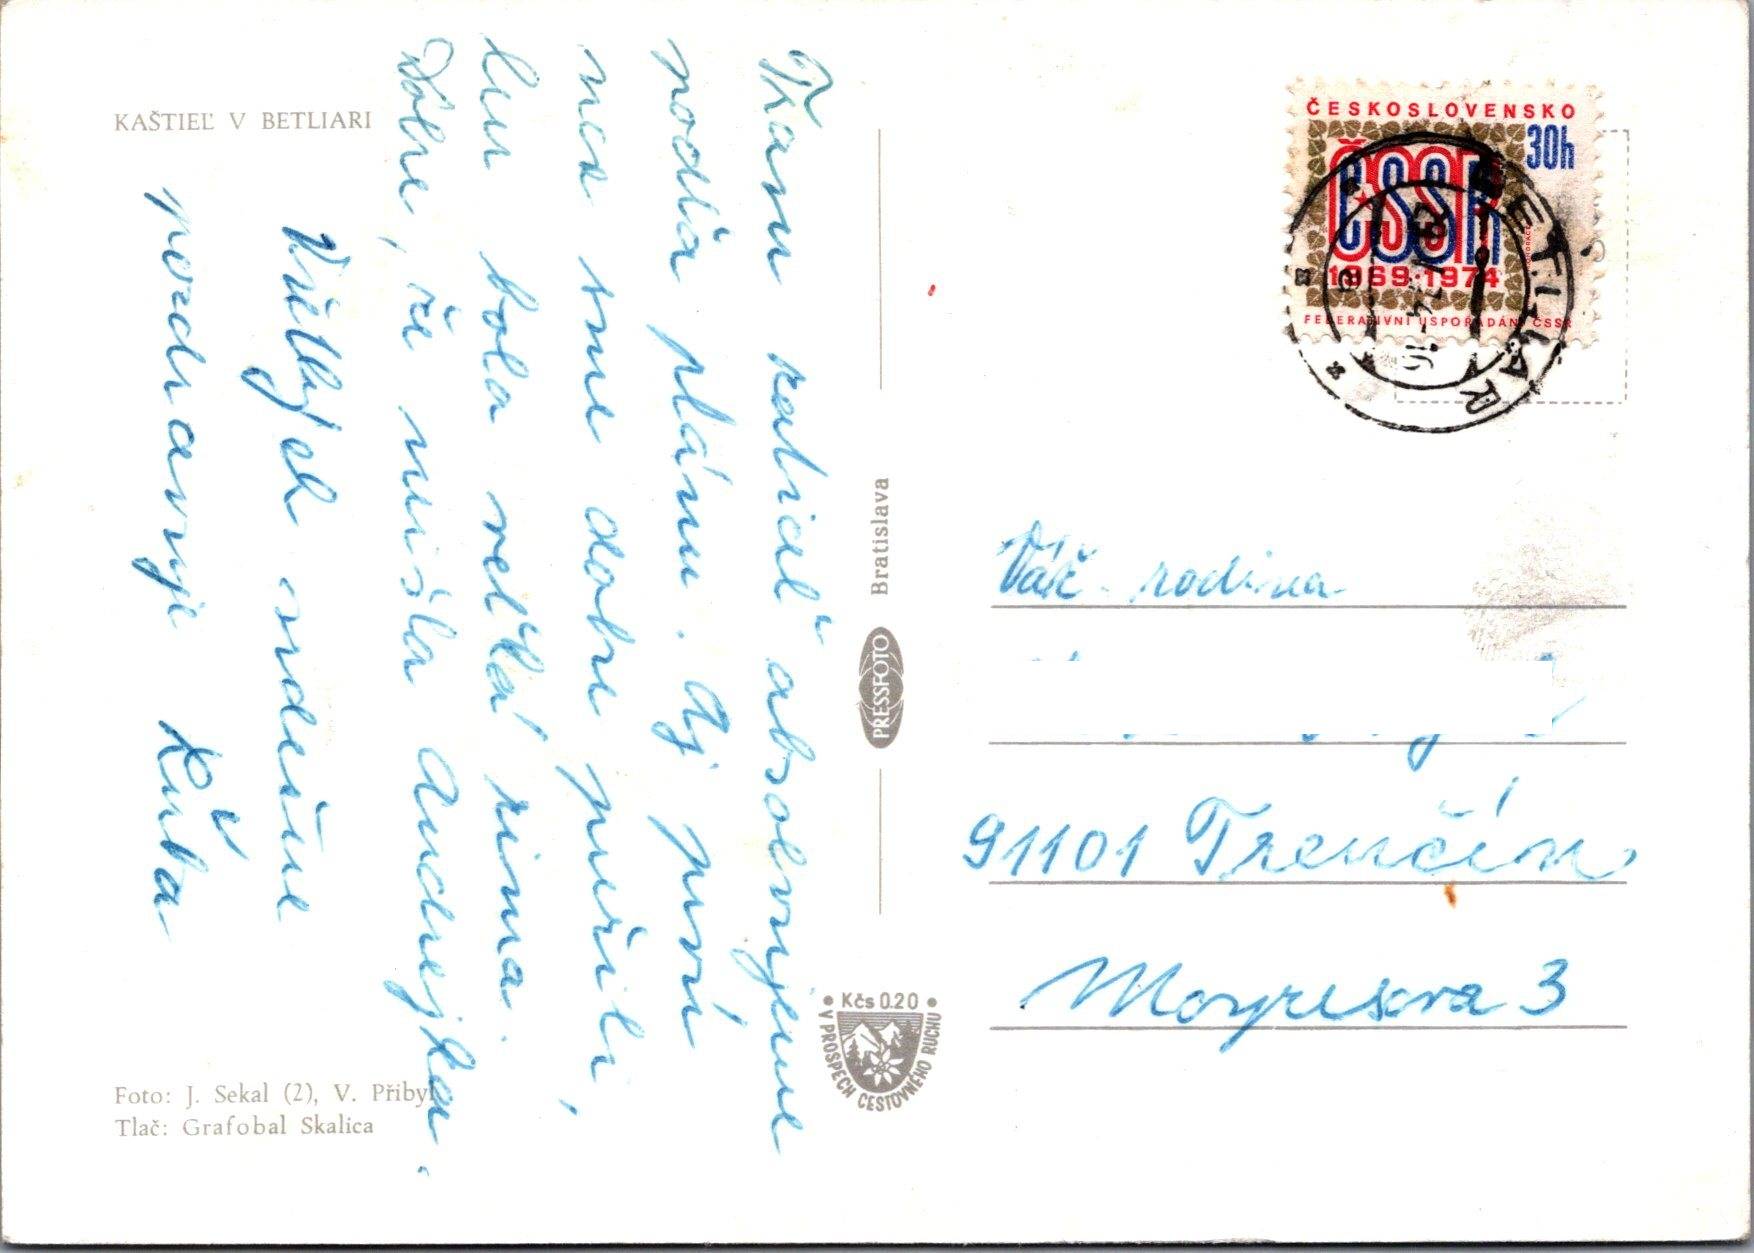 KAŠTIEĽ V BETLIARI
Trasu zatiaľ absolvujeme
podľa plánu. Aj prvú
noc sme dobre prežili,
len bola veľká zima.
Dobre, že nešla Andrejka.
Všetkých srdečne
pozdravuje Kuba
Foto: J. Sekal (2), V. Přibyl
Tlač: Grafobal Skalica
PRESSFOTO Bratislava
Kčs 0.20
V PROSPECH CESTOVNÉHO RUCHU
ČESKOSLOVENSKO
30h
ČSSR
1969·1974
FEDERATIVNÍ USPOŘÁDÁNÍ ČSSR
BETLIAR
rodina
91101 Trenčín
Moyzesova 3